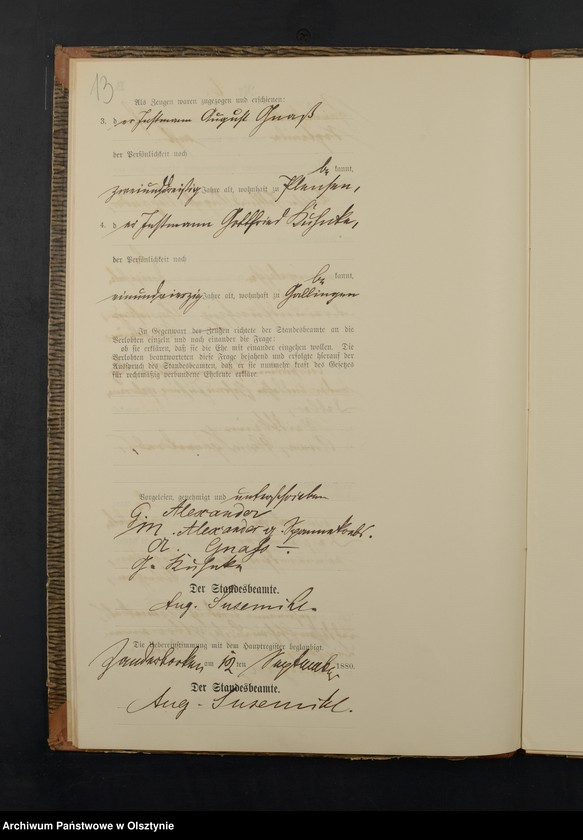 13
Als Zeugen waren zugezogen und erschienen:
3. der Instmann August Gnaß
der Persönlichkeit nach
be kannt,
zweiunddreißig Jahre alt, wohnhaft zu Plensen,
4. der Instmann Gottfried Kuhnke,
der Persönlichkeit nach
be kannt,
einundvierzig Jahre alt, wohnhaft zu Gallingen
In Gegenwart der Zeugen richtete der Standesbeamte an die
Verlobten einzeln und nach einander die Frage:
ob sie erklären, daß sie die Ehe mit einander eingehen wollen. Die
Verlobten beantworteten diese Frage bejahend und erfolgte hierauf der
Ausspruch des Standesbeamten, daß er sie nunmehr kraft des Gesetzes
für rechtmäßig verbundene Eheleute erkläre.
Vorgelesen, genehmigt und unterschrieben
G. Alexander
M. Alexander g. Spannekrebs.
A. Gnaß
G. Kuhnke
Der Standesbeamte.
Aug. Susemihl.
Die Uebereinstimmung mit dem Hauptregister beglaubigt
am 12 ten September 1880.
Der Standesbeamte.
Aug. Susemihl.
Archiwum Państwowe w Olsztynie